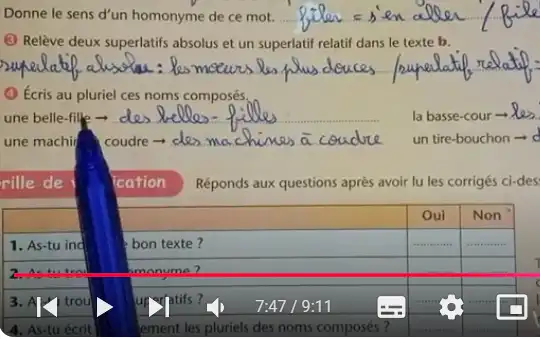 Donne le sens d'un homonyme de ce mot. filer = s'en aller / file
3 Relève deux superlatifs absolus et un superlatif relatif dans le texte b.
superlatif absolu : les mœurs les plus douces / superlatif relatif =
4 Écris au pluriel ces noms composés.
une belle-fille → des belles-filles la basse-cour → les
une machi coudre → des machines à coudre un tire-bouchon → d
rille de v ication Réponds aux questions après avoir lu les corrigés ci-des
Oui Non
1. As-tu ind bon texte ?
2. As-tu trou omonyme ?
3. As-tu trou uperlatifs ?
7:47 / 9:11
4. As-tu écrit ement les pluriels des noms composés ?